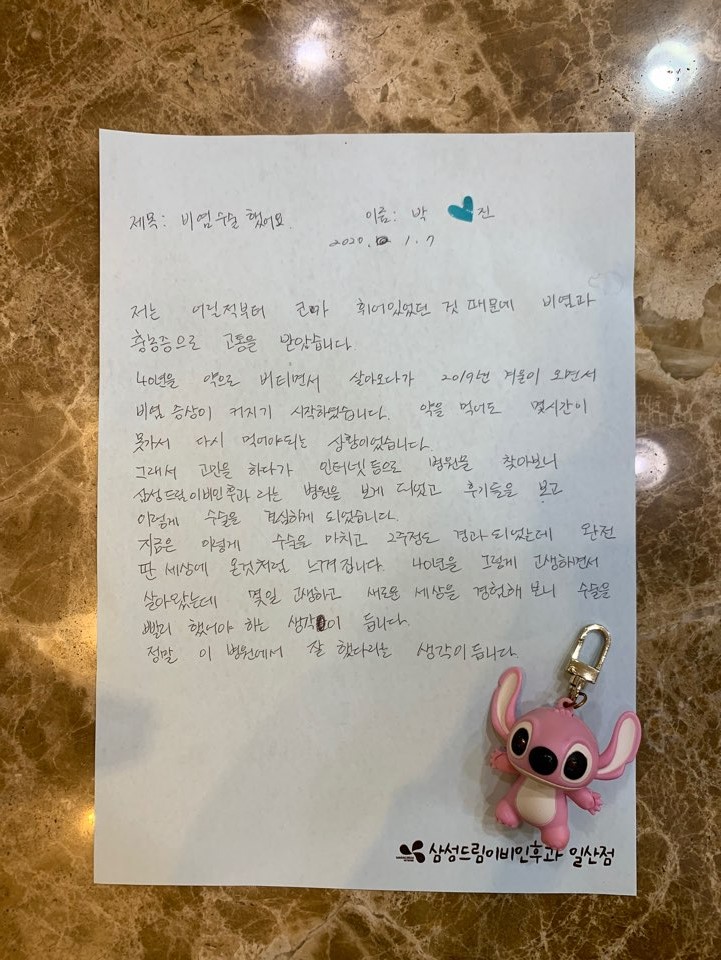 제목: 비염수술 했어요. 이름: 박 진
2020. 1. 7
저는 어릴적부터 코가 휘어있었던 것 때문에 비염과
축농증으로 고통을 받았습니다.
40년을 약으로 버티면서 살아오다가 2019년 겨울이 오면서
비염 증상이 커지기 시작하였습니다. 약을 먹어도 몇시간이
못가서 다시 먹어야되는 상황이었습니다.
그래서 고민을 하다가 인터넷등으로 병원을 찾아보니
삼성드림이비인후과 라는 병원을 보게 되었고 후기들을 보고
이렇게 수술을 결심하게 되었습니다.
지금은 이렇게 수술을 마치고 2주정도 경과되었는데 완전
딴 세상에 온것처럼 느껴집니다. 40년을 그렇게 고생하면서
살아왔는데 몇일 고생하고 새로운 세상을 경험해 보니 수술을
빨리 했어야 하는 생각이 듭니다.
정말 이 병원에서 잘 했다라는 생각이 듭니다.
삼성드림이비인후과 일산점